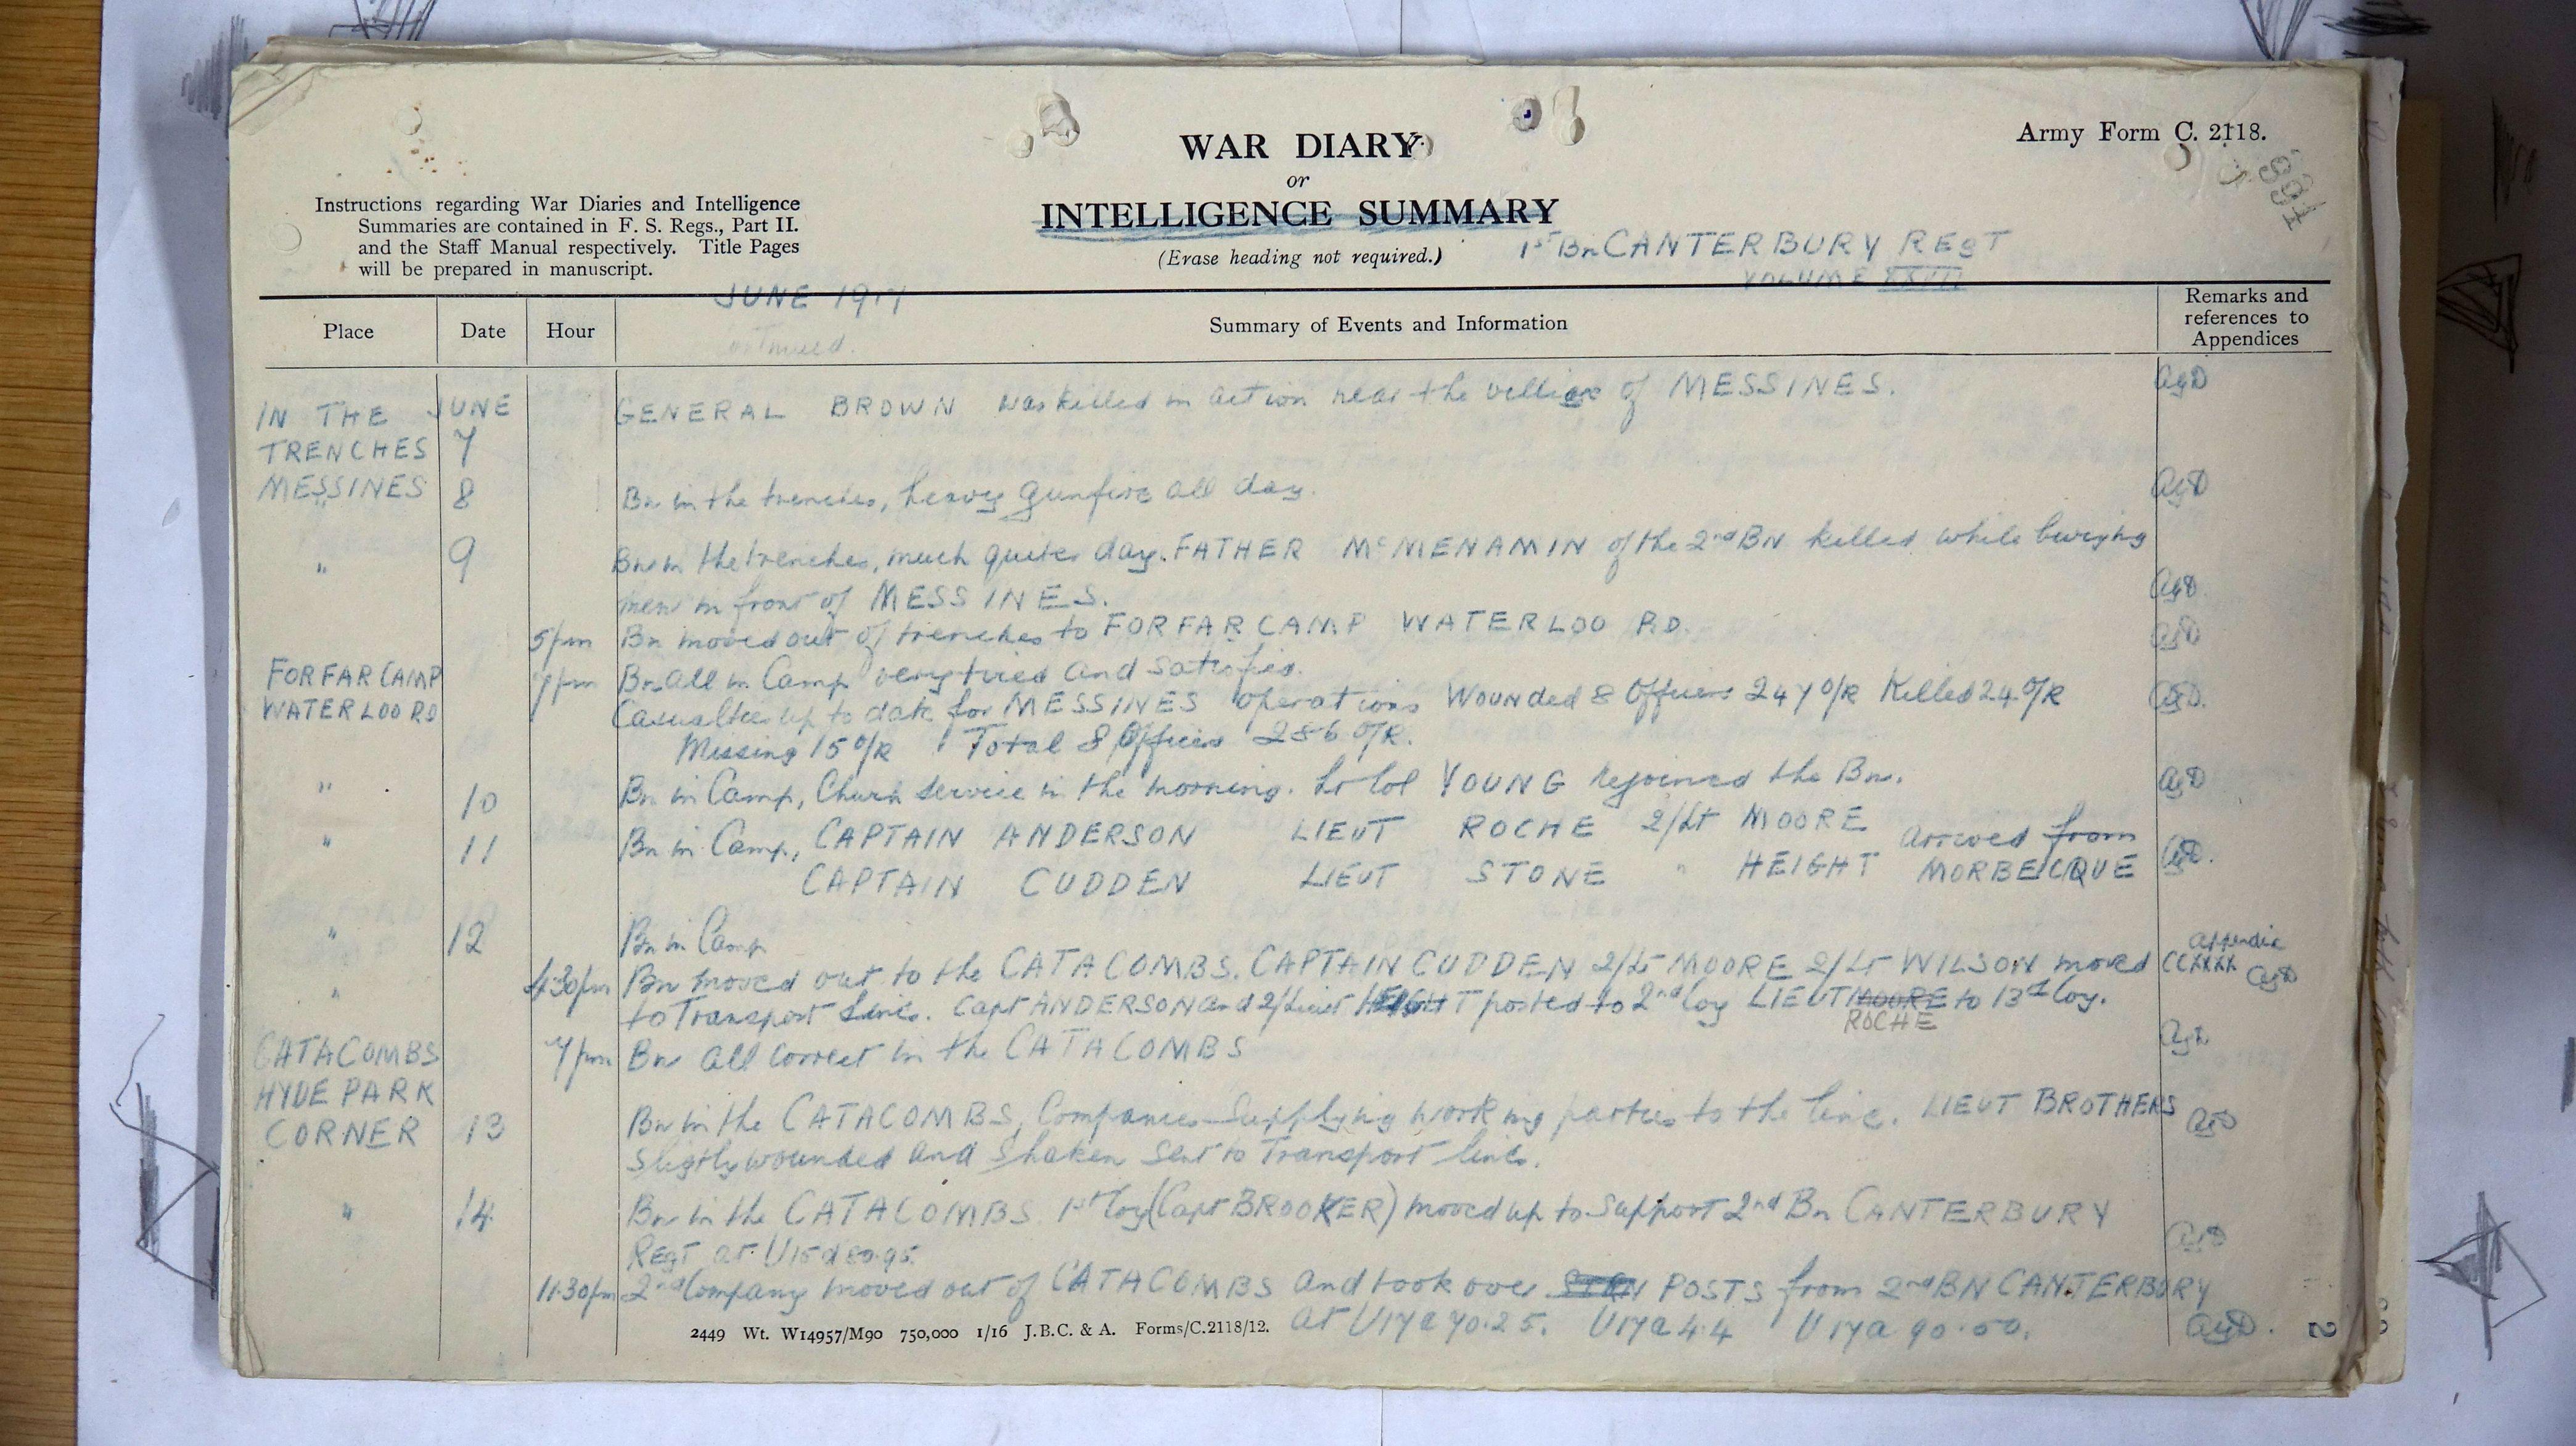 Army Form C. 2118.
WAR DIARY
or
INTELLIGENCE SUMMARY
(Erase heading not required.)
Instructions regarding War Diaries and Intelligence
Summaries are contained in F. S. Regs., Part II.
and the Staff Manual respectively. Title Pages
will be prepared in manuscript.
1st Bn CANTERBURY REGT
VOLUME
JUNE 1917
Place Date Hour Summary of Events and Information Remarks and references to Appendices
IN THE TRENCHES MESSINES JUNE 7 GENERAL BROWN was killed in action near the village of MESSINES. AGD
" 8 Bn in the trenches, heavy gunfire all day. AGD
" 9 Bn in the trenches, much quiter day. FATHER McMENAMIN of the 2nd BN killed while burying
men in front of MESSINES. AGD
5pm Bn moved out of trenches to FORFAR CAMP WATERLOO RD. AGD
FORFAR CAMP WATERLOO RD 7pm Bn all in Camp very tired and satisfied.
Casualties up to date for MESSINES operations Wounded 8 Officers 247 O/R Killed 24 O/R AGD
Missing 15 O/R Total 8 Officers 286 O/R.
" 10 Bn in Camp, Church service in the morning. Lt Col YOUNG rejoined the Bn. AGD
" 11 Bn in Camp, CAPTAIN ANDERSON LIEUT ROCHE 2/Lt MOORE arrived from
CAPTAIN CUDDEN LIEUT STONE " HEIGHT MORBECQUE AGD.
" 12 Bn in Camp
" 4.30pm Bn moved out to the CATACOMBS. CAPTAIN CUDDEN 2/Lt MOORE 2/Lt WILSON moved Appendix CCXXXX AGD
to Transport Lines. Capt ANDERSON and 2/Lieut HEIGHT posted to 2nd Coy LIEUT MOORE ROCHE to 13th Coy.
CATACOMBS HYDE PARK CORNER 7pm Bn all correct in the CATACOMBS AGD
13 Bn in the CATACOMBS, Companies supplying working parties to the line. LIEUT BROTHERS AGD
slightly wounded and shaken sent to Transport lines.
" 14 Bn in the CATACOMBS. 1st Coy (Capt BROOKER) moved up to support 2nd Bn CANTERBURY
REGT at U15d 80.95. AGD
11.30pm 2nd Company moved out of CATACOMBS and took over POSTS from 2nd BN CANTERBURY
at U17a 70.25. U17a 4.4 U17a 90.50. AGD.
2449 Wt. W14957/M90 750,000 1/16 J.B.C. & A. Forms/C.2118/12.
2